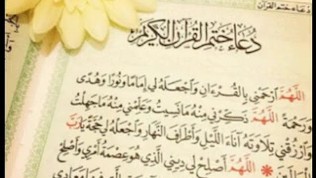 دعاء ختم القرآن
دُعَاءُ خَتْمِ القُرْآنِ الكَرِيمِ
اللَّهُمَّ ارْحَمْنِي بِالقُرْءَانِ وَاجْعَلهُ لِي إِمَامًا وَنُورًا وَهُدًى
وَرَحْمَةً اللَّهُمَّ ذَكِّرْنِي مِنْهُ مَانَسِيتُ وَعَلِّمْنِي مِنْهُ مَاجَهِلْتُ
وَارْزُقْنِي تِلَاوَتَهُ آنَاءَ اللَّيْلِ وَأَطْرَافَ النَّهَارِ وَاجْعَلْهُ لِي حُجَّةً يَارَبَّ
العَالَمِينَ * اللَّهُمَّ أَصْلِحْ لِي دِينِي الَّذِي هُوَ عِصْمَةُ أَمْرِي وَأَصْلِحْ